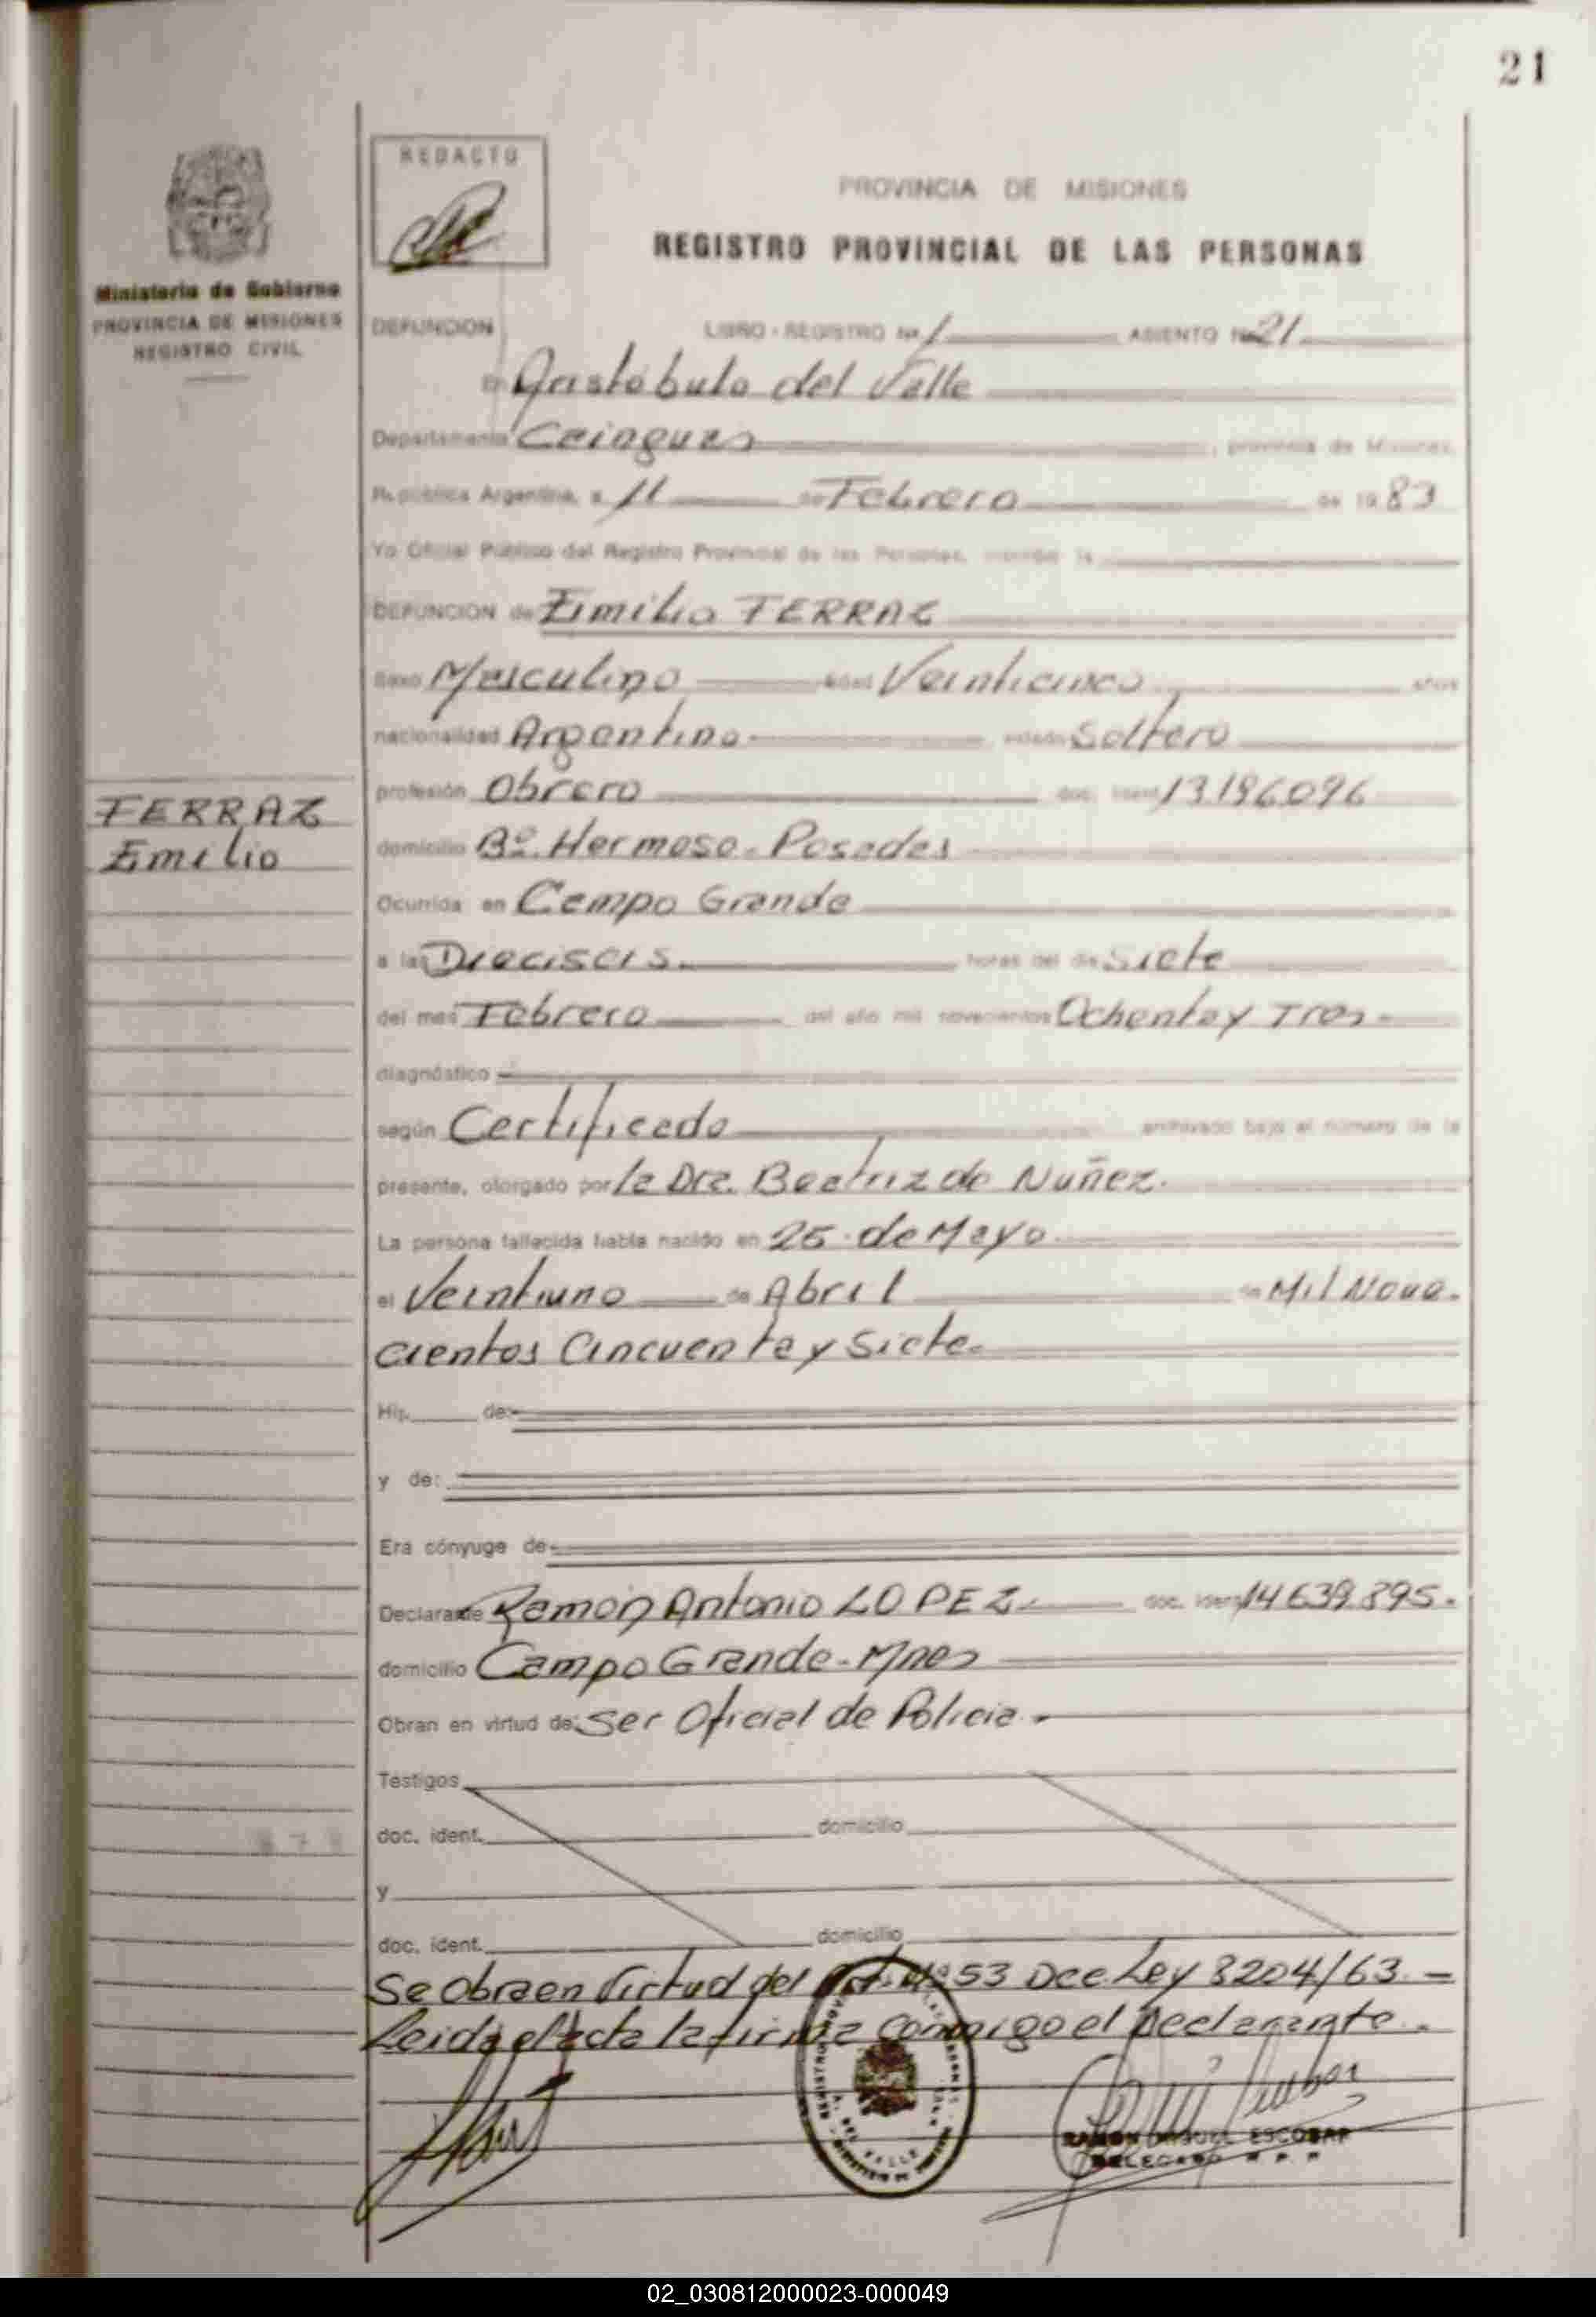 21
REDACTO
PROVINCIA DE MISIONES
REGISTRO PROVINCIAL DE LAS PERSONAS
Ministerio de Gobierno
PROVINCIA DE MISIONES
REGISTRO CIVIL
DEFUNCION LIBRO - REGISTRO Nº 1 ASIENTO Nº 21
En Aristóbulo del Valle
Departamento Cainguas, provincia de Misiones,
República Argentina, a 11 de Febrero de 19 83
Yo Oficial Público del Registro Provincial de las Personas, inscribo la
DEFUNCION de Emilio FERRAZ
sexo Masculino edad Veinticinco años
nacionalidad Argentina estado Soltero
profesión Obrero doc. ident. 13196096
FERRAZ
Emilio
domicilio Bº Hermoso - Posadas
Ocurrida en Campo Grande
a las Dieciseis. horas del día Siete
del mes Febrero del año mil novecientos Ochenta y Tres -
diagnóstico
según Certificado archivado bajo el número de la
presente, otorgado por la Dra. Beatriz de Nuñez.
La persona fallecida había nacido en 25 de Mayo
el Veintiuno de Abril de Mil Nove-
cientos Cincuenta y Siete.
Hij. de:
y de:
Era cónyuge de
Declarante Ramón Antonio LOPEZ. doc. ident. 14639895.
domicilio Campo Grande - Mnes
Obran en virtud de: Ser Oficial de Policia.
Testigos
doc. ident. domicilio
y
doc. ident. domicilio
Se obra en Virtud del Art. Nº 53 Dec. Ley 8204/63. -
Leida el acta la firma conmigo el Declarante.
RAMON MIGUEL ESCOBAR
DELEGADO R. P. P.
02_030812000023-000049